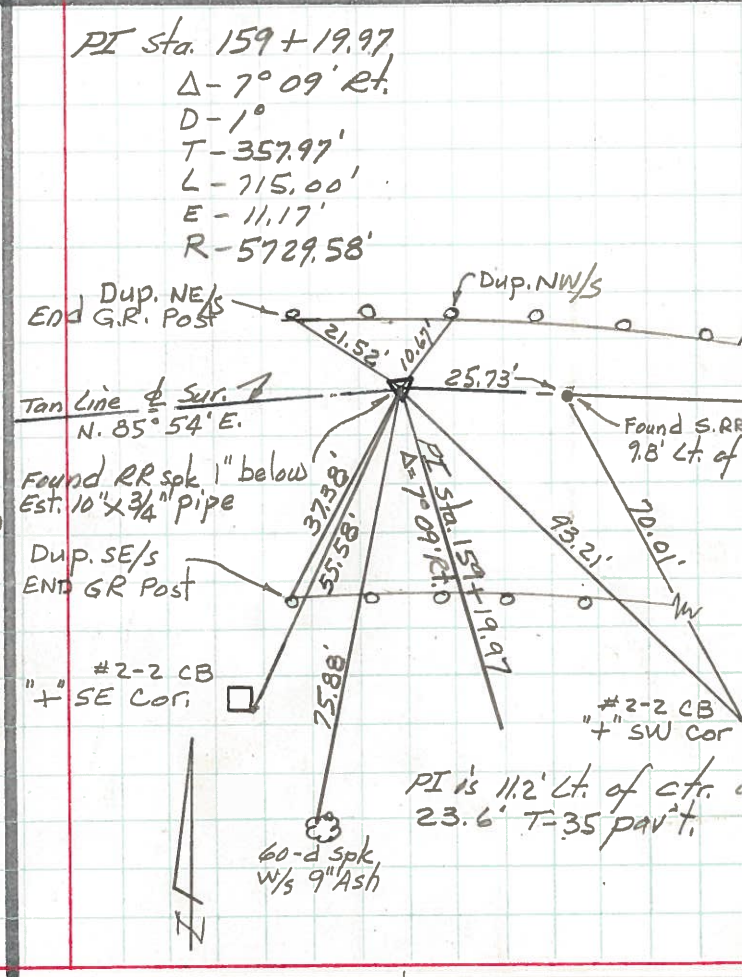 PI Sta. 159+19.97
Δ - 7° 09' Rt.
D - 1°
T - 357.97'
L - 715.00'
E - 11.17'
R - 5729.58'
Dup. NE/s
End G.R. Post
Dup. NW/s
21.52'
10.67'
25.73'
Tan Line ₵ Sur.
N. 85° 54' E.
Found S. RR
9.8' Lt. of
Found RR spk 1" below
Est. 10" x 3/4" pipe
37.38'
55.58'
PI Sta. 159+19.97
Δ = 7° 09' Rt.
93.21'
70.01'
Dup. SE/s
END GR Post
75.88'
#2-2 CB
"+" SE Cor.
#2-2 CB
"+" SW Cor
PI is 11.2' Lt. of ctr.
23.6' T-35 pav't.
60-d spk
W/s 9" Ash
N